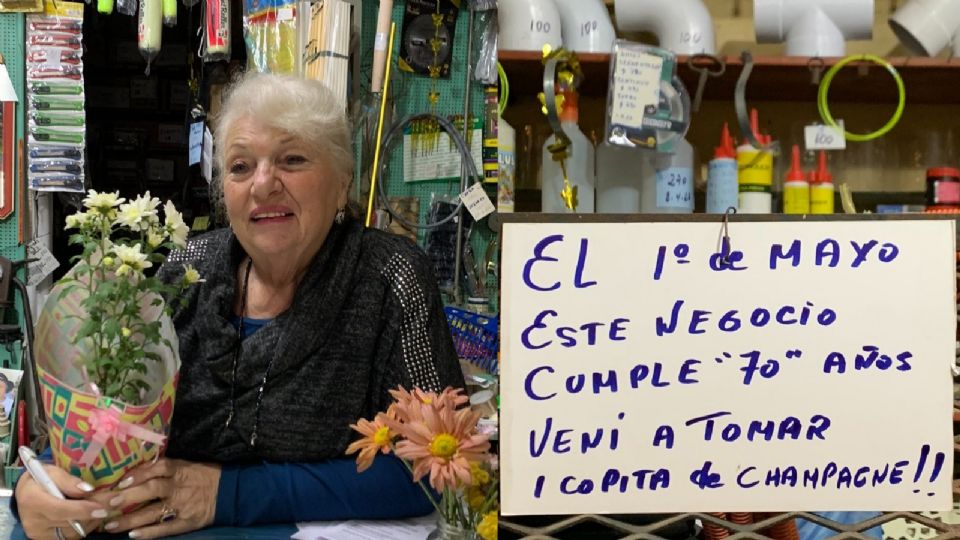 100
100
100
270
8.4.60
100
EL 1º de MAYO
ESTE NEGOCIO
CUMPLE "70" AÑOS
VENI A TOMAR
1 COPITA de CHAMPAGNE!!